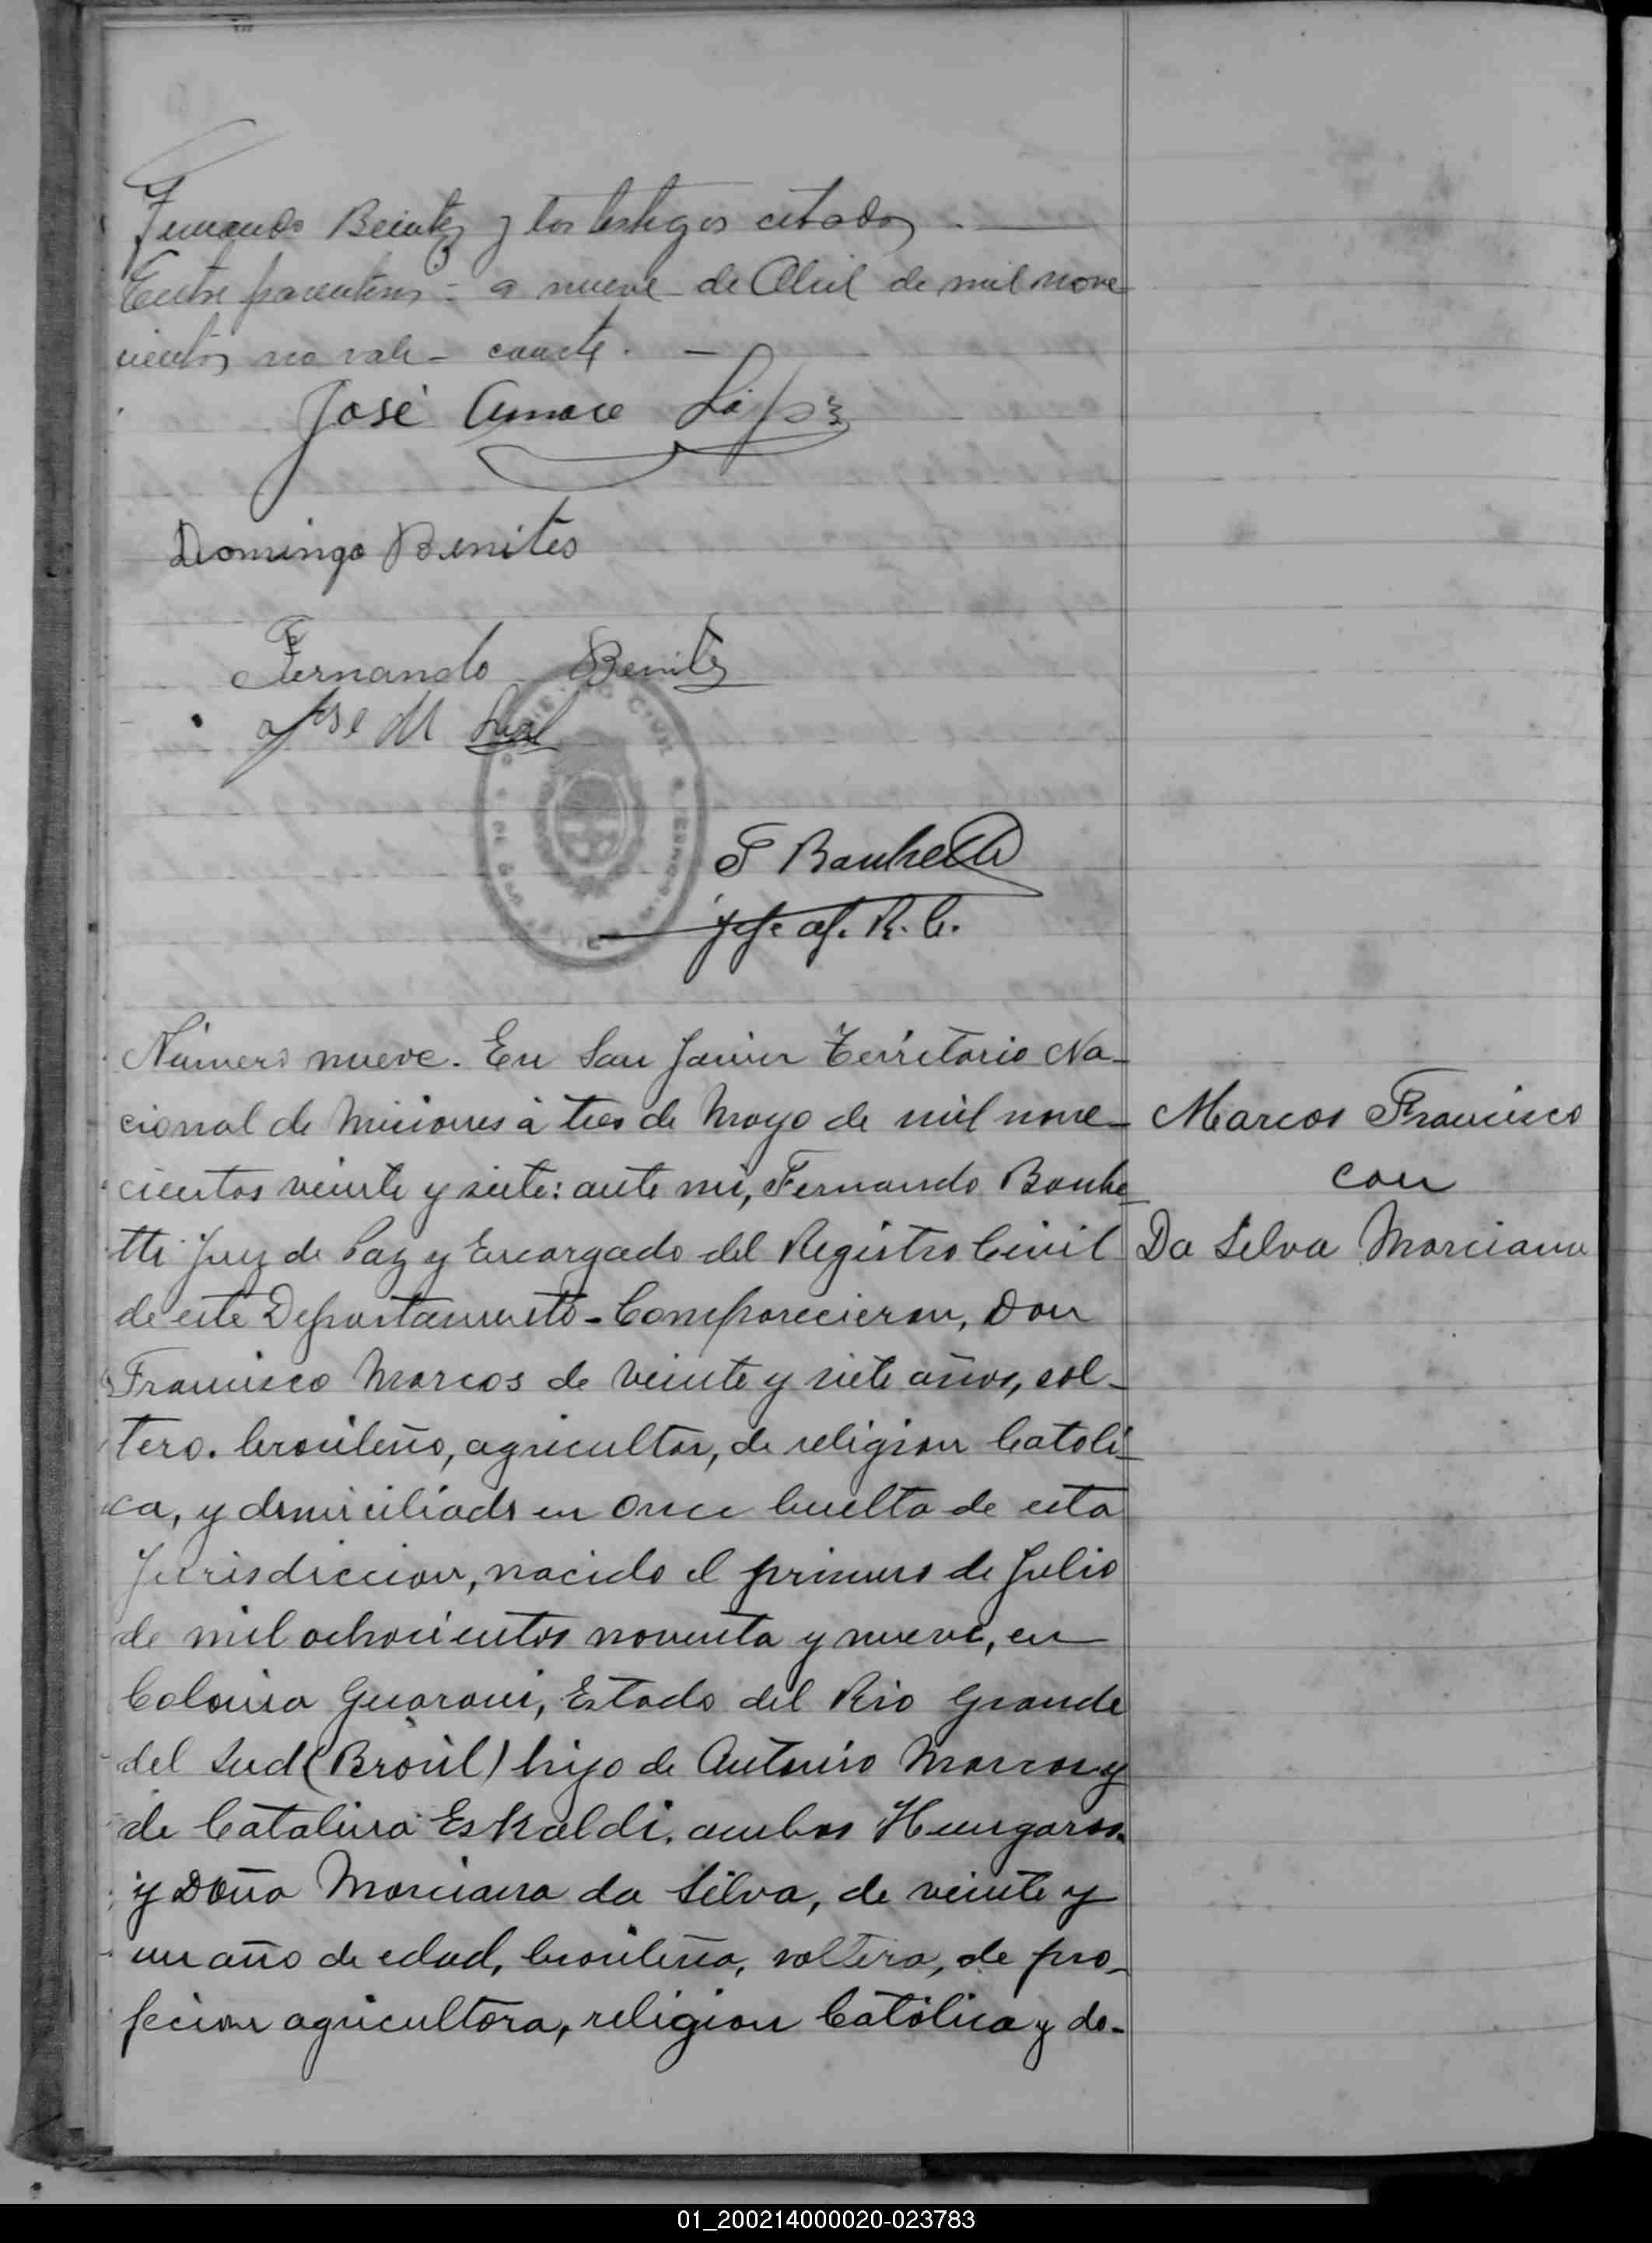 Fernando Benitez y los testigos citados.
Entre parentesis = a nueve de Abril de mil nove
cientos no vale - conste. -
José Amaro
Domingo Benites
Fernando Benitez
José M
F Banhetti
Jefe of. R. C.
Número nueve. En San Javier Territorio Na-
cional de Misiones á tres de Mayo de mil nove-
cientos veinte y siete: ante mi, Fernando Banhe
tti Juez de Paz y Encargado del Registro Civil
de este Departamento - Comparecieron, Don
Francisco Marcos de veinte y siete años, sol-
tero. brasileño, agricultor, de religion Catoli-
ca, y domiciliado en Once buelta de esta
Jurisdiccion, nacido el primero de Julio
de mil ochocientos noventa y nueve, en
Colonia Guarani, Estado del Rio Grande
del Sud (Brasil) hijo de Antonio Marcos y
de Catalina Eskaldi. ambos Hungaros.
y Doña Marciana da Silva, de veinte y
un año de edad, brasileña, soltera, de pro-
fecion agricultora, religion Católica y do-
Marcos Francisco
con
Da Silva Marciana
01_200214000020-023783